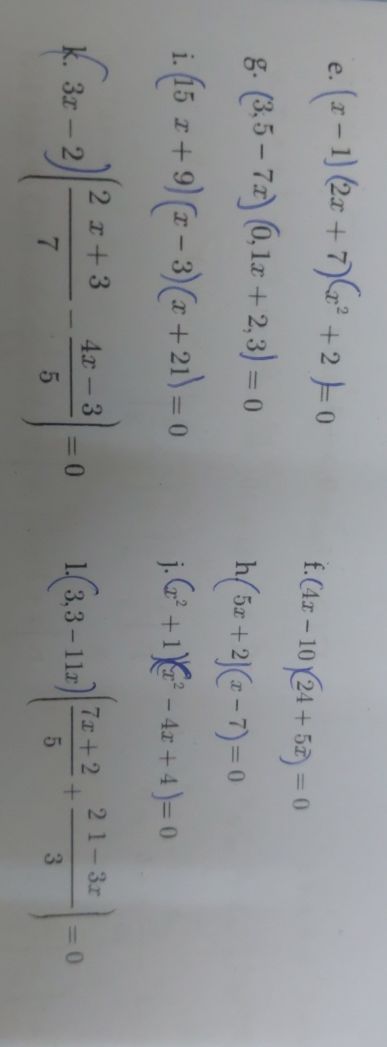 e. (x − 1)(2x + 7)(x² + 2) = 0
f. (4x − 10)(24 + 5x) = 0
g. (3,5 − 7x)(0,1x + 2,3) = 0
h. (5x + 2)(x − 7) = 0
i. (15 x + 9)(x − 3)(x + 21) = 0
j. (x² + 1)(x² − 4x + 4) = 0
k. (3x − 2)(2 x + 3 / 7 − 4x − 3 / 5) = 0
l. (3,3 − 11x)(7x + 2 / 5 + 2 1 − 3x / 3) = 0